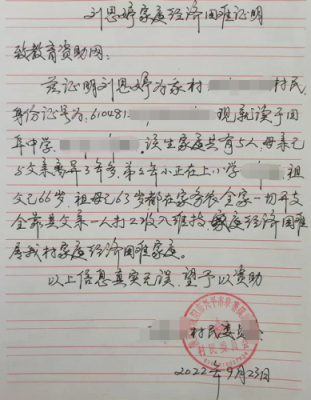 刘思婷家庭经济困难证明
致教育资助网:
兹证明刘思婷为家村 村民,
身份证号为:610481 现就读于田
阜中学 该生家庭共有5人,母亲已
与父亲离异3年多,弟弟年小正在上小学 祖
父已66岁,祖母已63岁都在家务农全家一切开支
全靠其父亲一人打工收入维持,家庭经济困难
属我村家庭经济困难家庭。
以上信息真实无误,望予以资助
村民委员
2022年9月23日